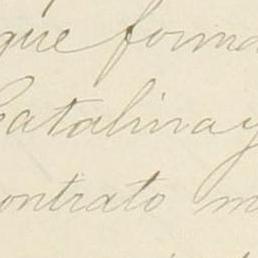 que forma
Catalina y
contrato m